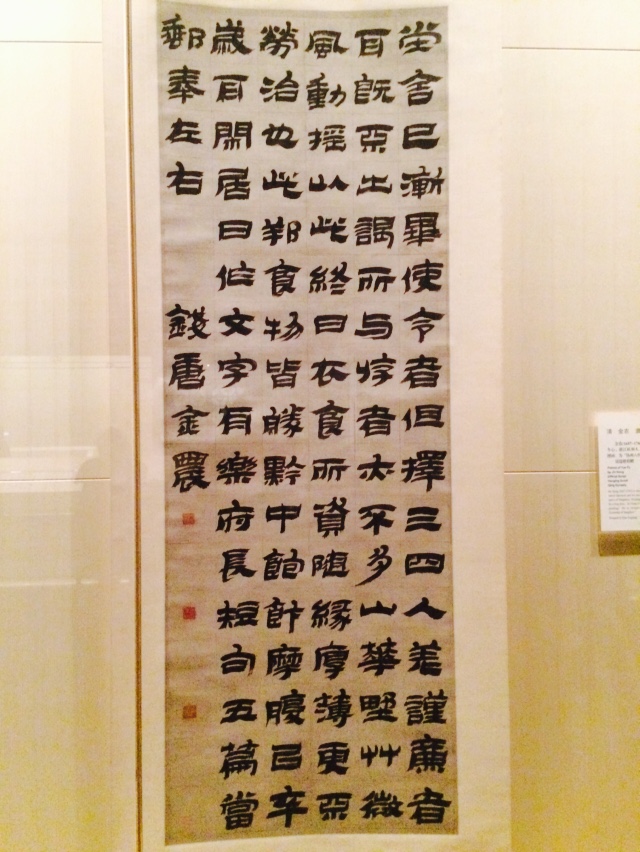 堂舍已漸畢使令者但擇三四人差謹廉者
耳既出謁所与游者亦不多山華野艸微
風動搖以此終日衣食所資隨緣厚薄更
勞治也此邦食物皆勝黔中飽飰摩腹㠯卒
歲耳閒居日作文字有樂府長短句五篇當
郵奉左右
錢唐金農